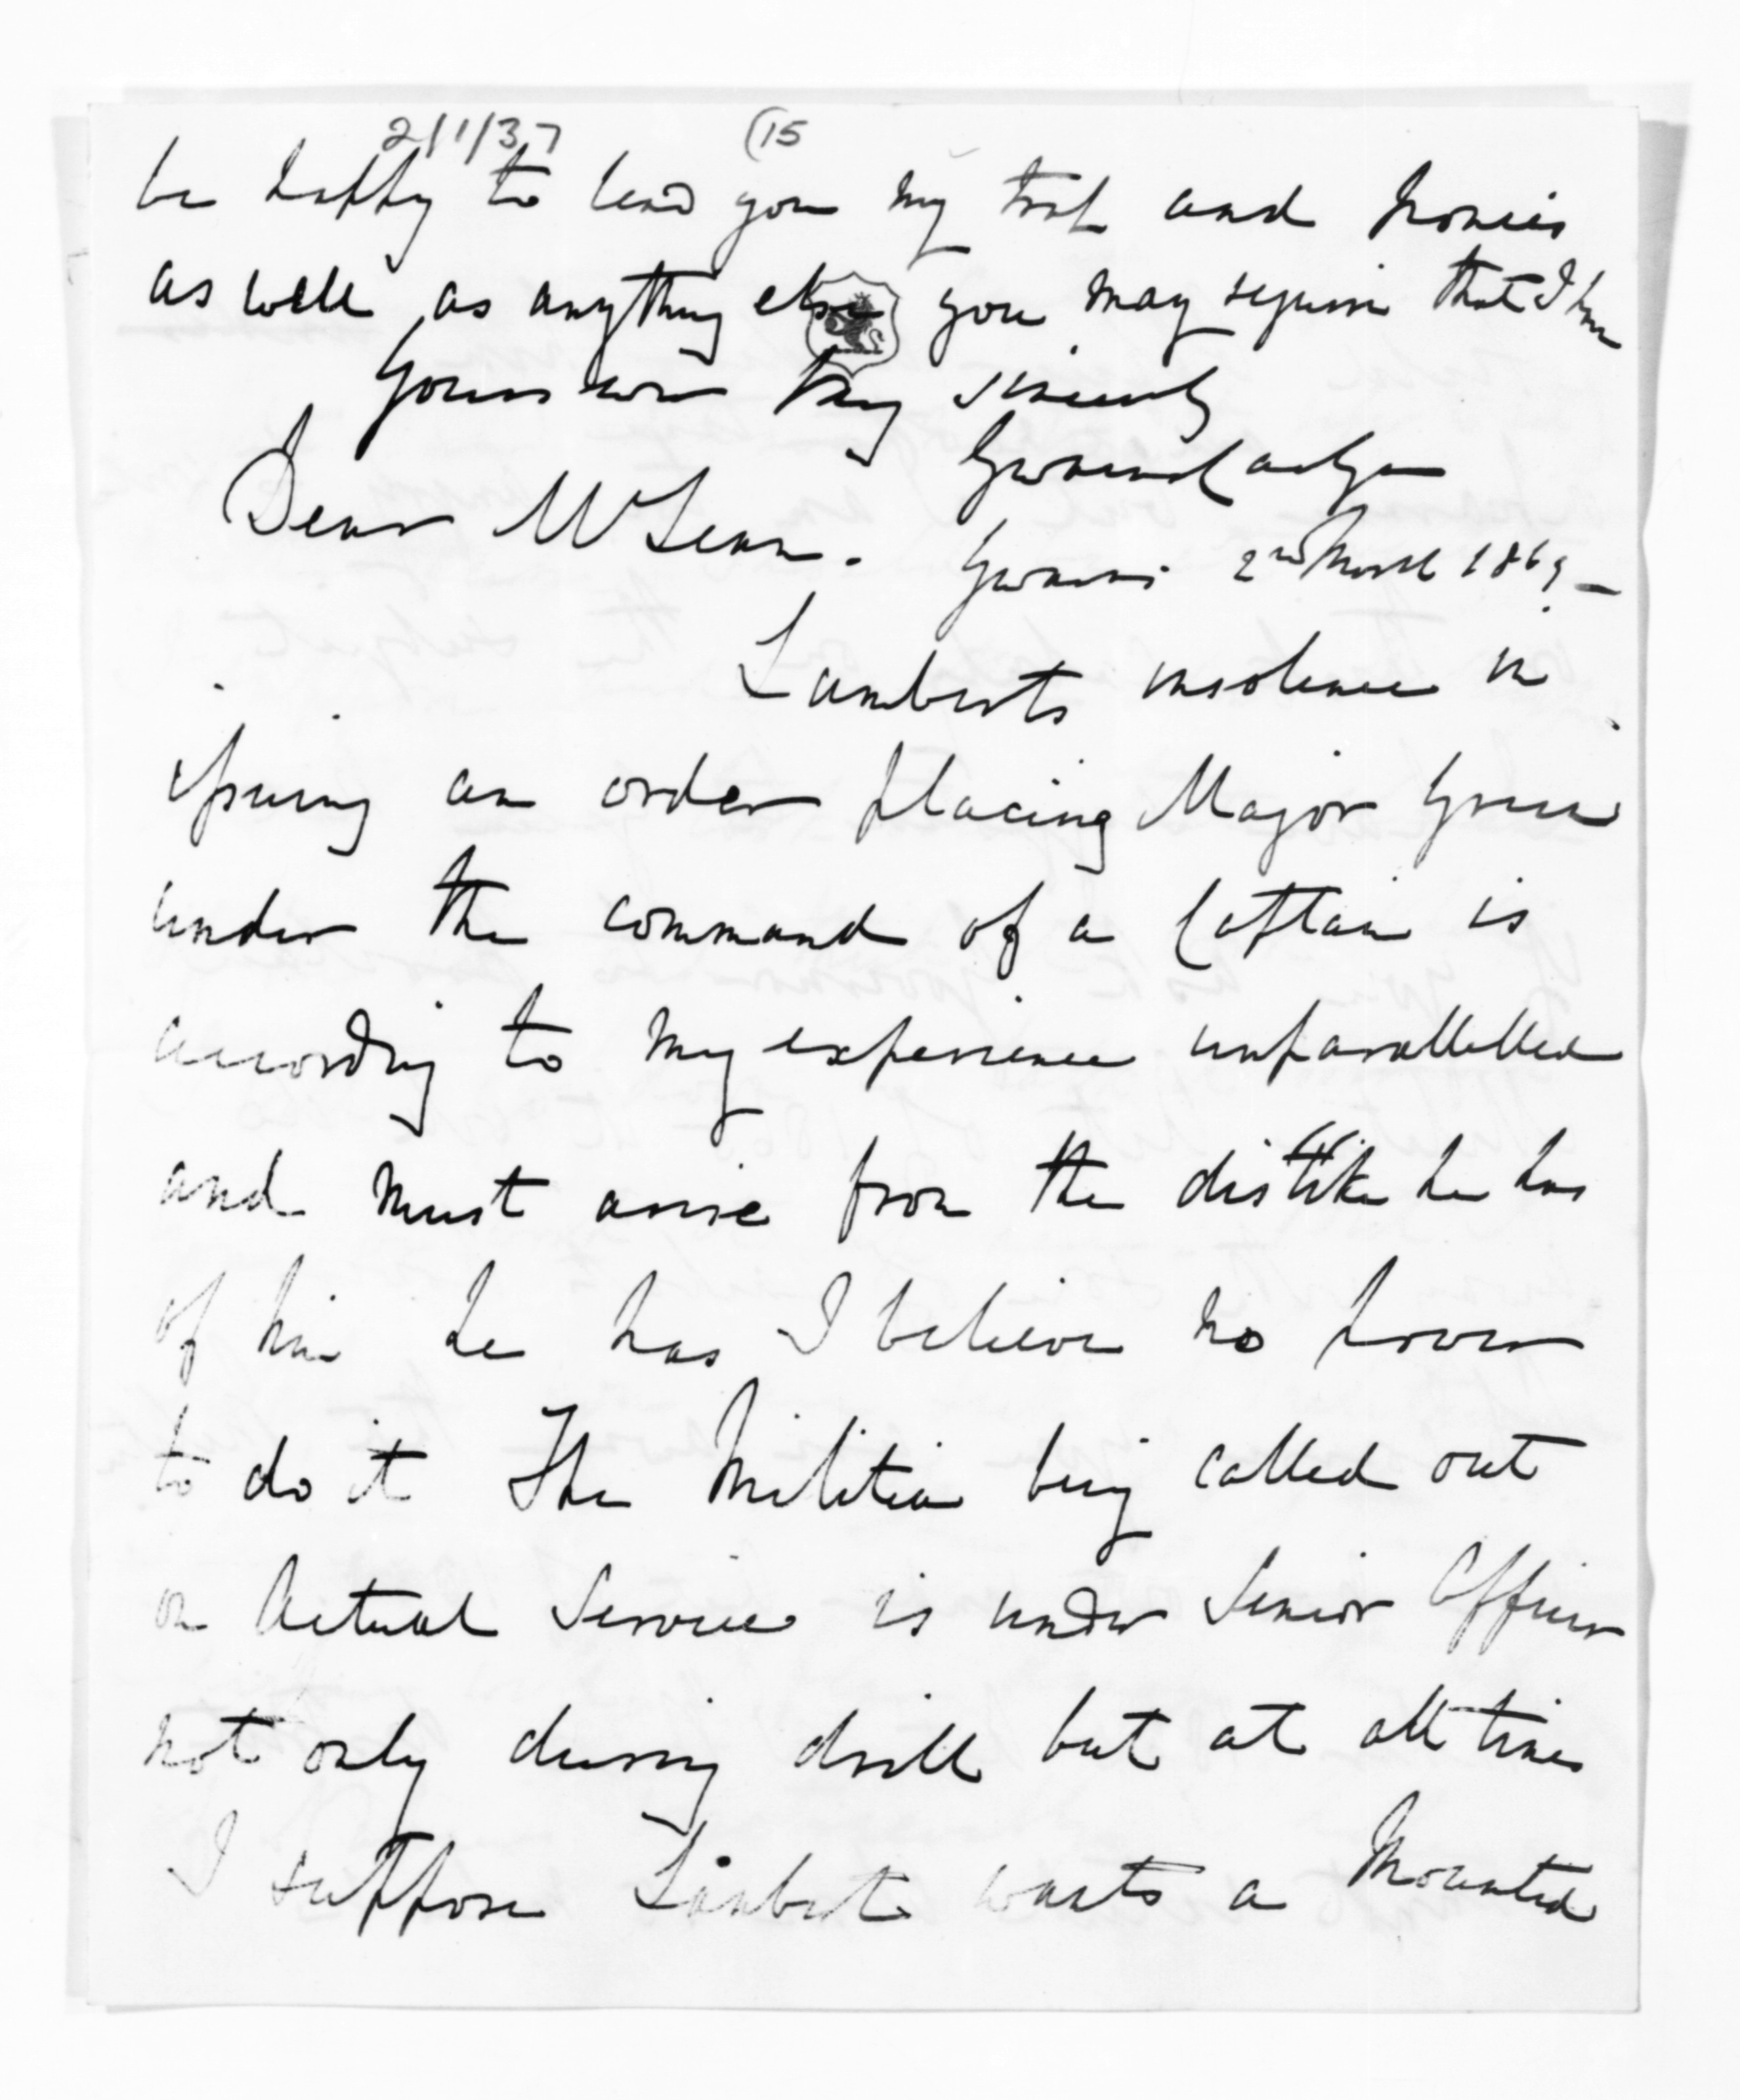 2/1/37 (15
be happy to lend you my trap and horses
as well as anything else you may require that I have
Yours ever very sincerely
Dear McLean.
2nd March 1869 –
Lamberts insolence in
issuing an order placing Major Green
under the command of a Captain is
according to my experience unparallelled
and must arise from the dislike he has
of him he has I believe no power
to do it The Militia being called out
on Actual Service is under Senior Officer
not only during drill but at all times
I suppose Lambert wants a Mounted